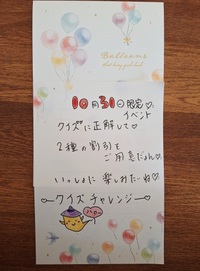 Balloons
10月31日限定♡
イベント
クイズに正解して♡
2種の割引を
ご用意だよん♡
いっしょに楽しみたーね♡
クイズチャレンジー